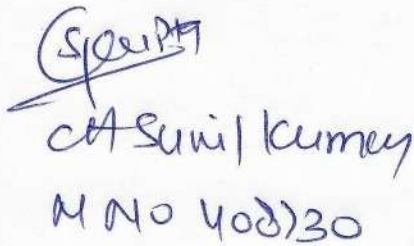 CA Sunil Kumar
M NO 408730